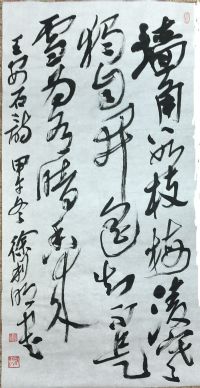 墙角数枝梅凌寒
独自开遥知不是
雪为有暗香来
王安石诗甲午冬徐